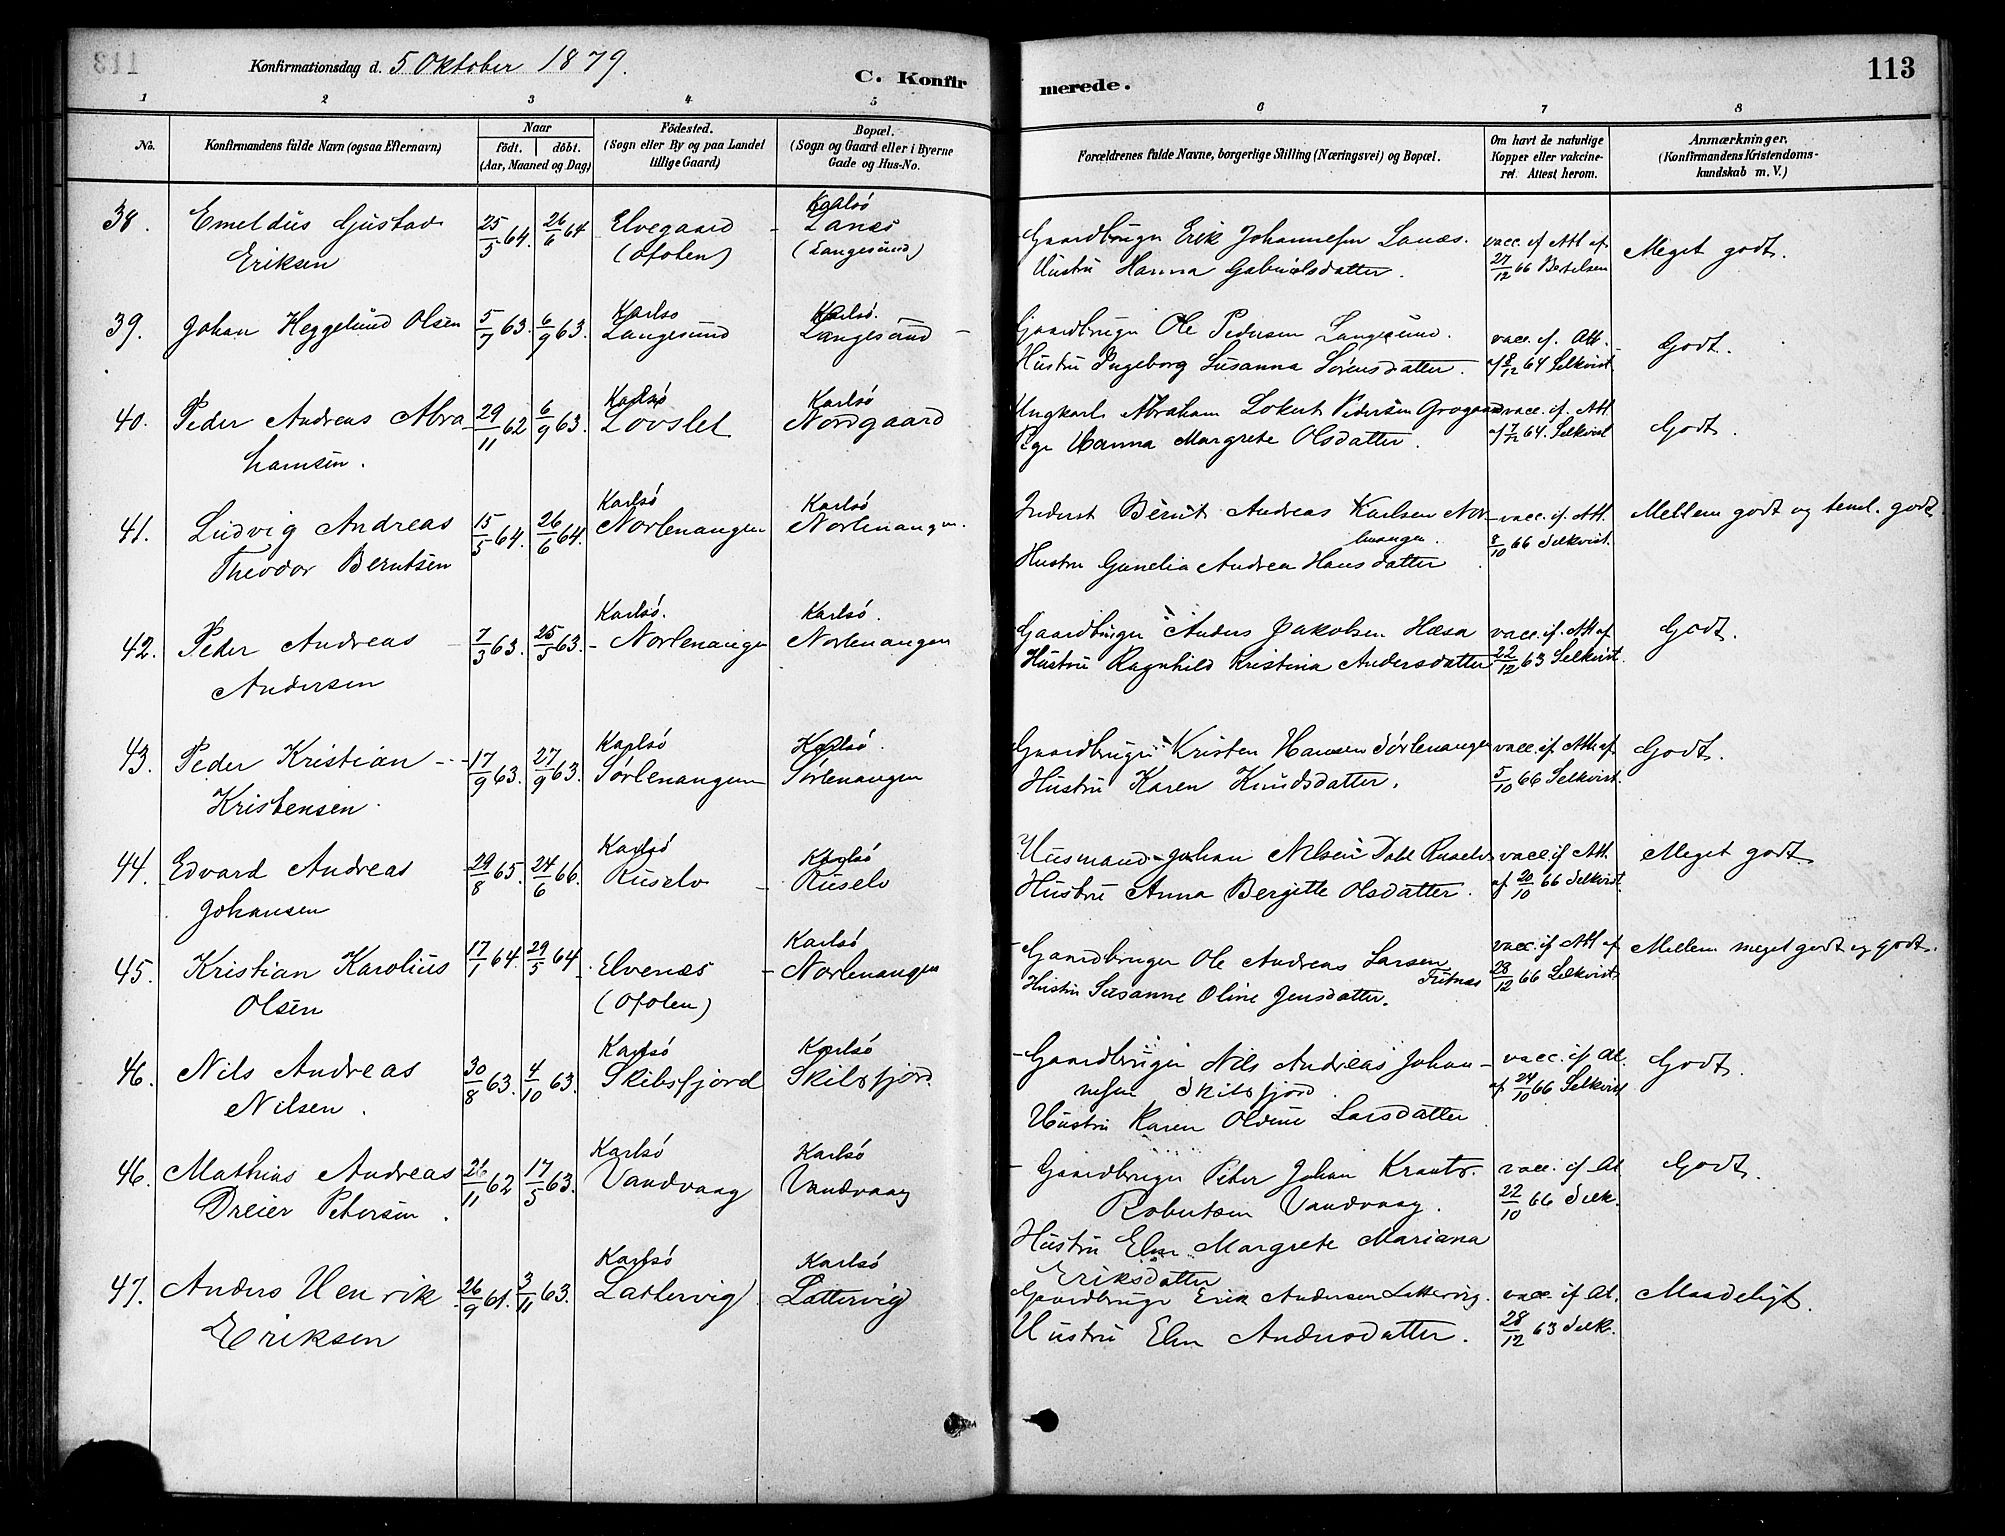 113
Konfirmationsdag d. 5 Oktober 1879.
C. Konfirmerede.
113
1 2 3 4 5 6 7 8
No.
Konfirmandens fulde Navn (ogsaa Efternavn)
Naar
födt. döbt.
(Aar, Maaned og Dag)
Födested.
(Sogn eller By og paa Landet
tillige Gaard)
Bopæl.
(Sogn og Gaard eller i Byerne
Gade og Hus-No.
Forældrenes fulde Navne, borgerlige Stilling (Næringsvei) og Bopæl.
Om havt de naturlige
Kopper eller vakcine-
ret. Attest herom.
Anmærkninger,
(Konfirmandens Kristendoms-
kundskab m. V.)
38. Emeldus Gustav
Eriksen
25/5 64. 26/6 64
Elvegaard
(Ofoten)
Karlsö
Lanæs
(Langesund)
Gaardbruger Erik Johannesen Lanæs.
Hustru Hanna Gabrielsdatter.
vacc. if. Att af
27/12 66 Bertelsen
Meget godt.
39. Johan Heggelund Olsen
5/7 63. 6/9 63.
Karlsö
Langesund
Karlsö.
Langesund
Gaardbruger Ole Pedersen Langesund.
Hustru Ingeborg Susanna Sørensdatter.
vacc. if. Att.
af 8/12 64 Selkvist
Godt.
40. Peder Andreas Abra
hamsen.
29/11 62 6/9 63.
Karlsö
Lovslet
Karlsö
Nordgaard
Ungkarl Abraham Lokert Pedersen
Pige Hanna Margrete Olsdatter.
vacc. if. Att
af 7/12 64. Selkvist
Godt.
41. Ludvig Andreas
Theodor Berntsen
15/5 64. 26/6 64.
Karlsö
Norlenangen
Karlsö
Norlenangen.
Inderst Bernt Andreas Karlsen Nor-
lenangen.
Hustru Gunelia Andrea Hansdatter
vacc. if. Att.
8/10 66 Selkvist.
Mellem godt og teml. godt
42. Peder Andreas
Andersen
7/3 63. 25/5 63.
Karlsö.
Norlenangen
Karlsö.
Norlenangen
Gaardbruger Anders Jakobsen Hæsa
Hustru Ragnhild Kristina Andersdatter
vacc. if. Att af
22/12 63 Selkvist.
Godt.
43. Peder Kristian
Kristensen.
17/9 63. 27/9 63.
Karlsö
Sørlenangen
Karlsö.
Sørlenangen
Gaardbruger Kristen Hansen Sørlenangen
Hustru Karen Knudsdatter.
vacc. if. Att. af
5/10 66 Selkvist.
Godt.
44. Edvard Andreas
Johansen
29/8 65. 24/6 66.
Karlsö
Ruselv
Karlsö
Ruselv
Husmand Johan Nilsen Dahl Ruselv
Hustru Anna Bergitte Olsdatter.
vacc. if Att.
af 20/10 66 Selkvist.
Meget godt
45. Kristian Karolius
Olsen
17/1 64. 29/5 64.
Elvenæs
(Ofoten)
Karlsö
Norlenangen
Gaardbruger Ole Andreas Larsen
Hustru Susanne Oline Jensdatter.
vacc. if Att af
28/12 66 Selkvist
Mellem meget godt og godt.
46. Nils Andreas
Nilsen.
30/8 63. 4/10 63.
Karlsö
Skibsfjord
Karlsö
Skibsfjord.
Gaardbruger Nils Andreas Johan-
nesen Skibsfjord.
Hustru Karen Oldine Larsdatter
vacc. if. At.
af 24/10 66 Selkvist
Godt.
46. Mathias Andreas
Dreier Petersen.
26/11 62 17/5 63.
Karlsö
Vandvaag
Karlsö
Vandvaag
Gaardbruger Peter Johan Krantz.
Robertsen Vandvaag.
Hustru Elen Margrete Mariana
Eriksdatter
vacc. if At
22/10 66 Selk.
Godt.
47. Anders Henrik
Eriksen
26/9 61. 3/11 63.
Karlsö
Lattervig
Karlsö
Lattervig
Gaardbruger Erik Andersen Lattervig.
Hustru Elen Andersdatter.
vacc. if At.
28/12 63 Selk.
Maadeligt.